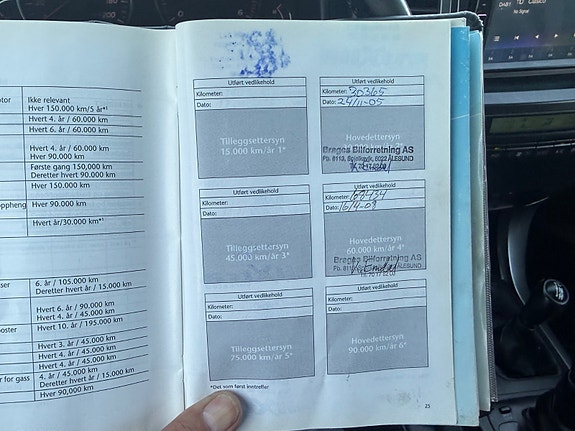 DAB1 TD Classico
No Signal
otor
Ikke relevant
Hver 150.000 km/5 år*¹
Hvert 4. år / 60.000 km
Hvert 6. år / 60.000 km
Hvert 4. år / 60.000 km
Hver 90.000 km
Første gang 150,000 km
Deretter hvert 90.000 km
Hver 150.000 km
oppheng Hver 90.000 km
Hvert år/30.000 km*¹
ser 6. år / 105.000 km
Deretter hvert år / 15.000 km
Hvert 6. år / 90.000 km
Hvert 4. år / 45.000 km
poster Hvert 10. år / 195.000 km
Hvert 3. år / 45.000 km
Hvert 4. år / 45.000 km
Hvert 4. år / 45.000 km
r for gass 4. år / 45.000 km
Deretter hvert år / 15.000 km
Hver 90,000 km
Utført vedlikehold
Kilometer:
Dato:
Tilleggsettersyn
15.000 km/år 1*
Utført vedlikehold
Kilometer: 30365
Dato: 24/11-05
Hovedettersyn
Brages Bilforretning AS
ÅLESUND
Utført vedlikehold
Kilometer:
Dato:
Tilleggsettersyn
45.000 km/år 3*
Utført vedlikehold
Kilometer:
Dato: 16/4-08
Hovedettersyn
60.000 km/år 4*
Brages Bilforretning AS
ÅLESUND
Utført vedlikehold
Kilometer:
Dato:
Tilleggsettersyn
75.000 km/år 5*
Utført vedlikehold
Kilometer:
Dato:
Hovedettersyn
90.000 km/år 6*
*Det som først inntreffer
25